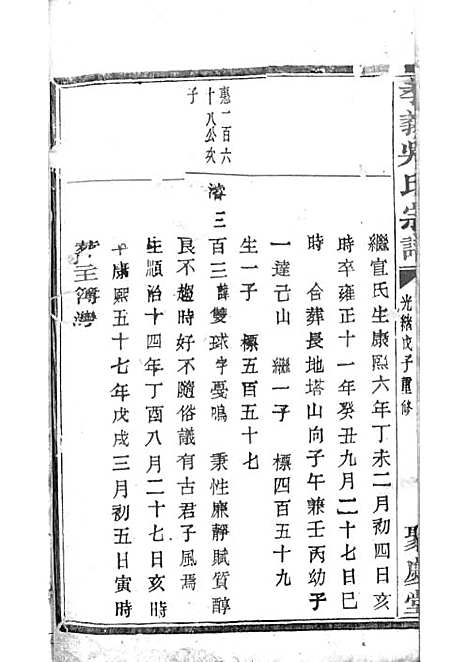 孝義吳氏宗譜
光緒戊子重修
聚慶堂
繼宣氏生康熙六年丁未二月初四日亥
時卒雍正十一年癸丑九月二十七日巳
時 合葬長地塔山向子午兼壬丙幼子
一達己山 繼一子 標四百五十九
生一子 標五百五十七
惠一百六
十八公次
子
濬三百三諱雙球字憂鳴 秉性廉靜賦質醇
良不趨時好不隨俗議有古君子風焉
生順治十四年丁酉八月二十七日亥時
卒康熙五十七年戊戌三月初五日寅時
葬主簿灣